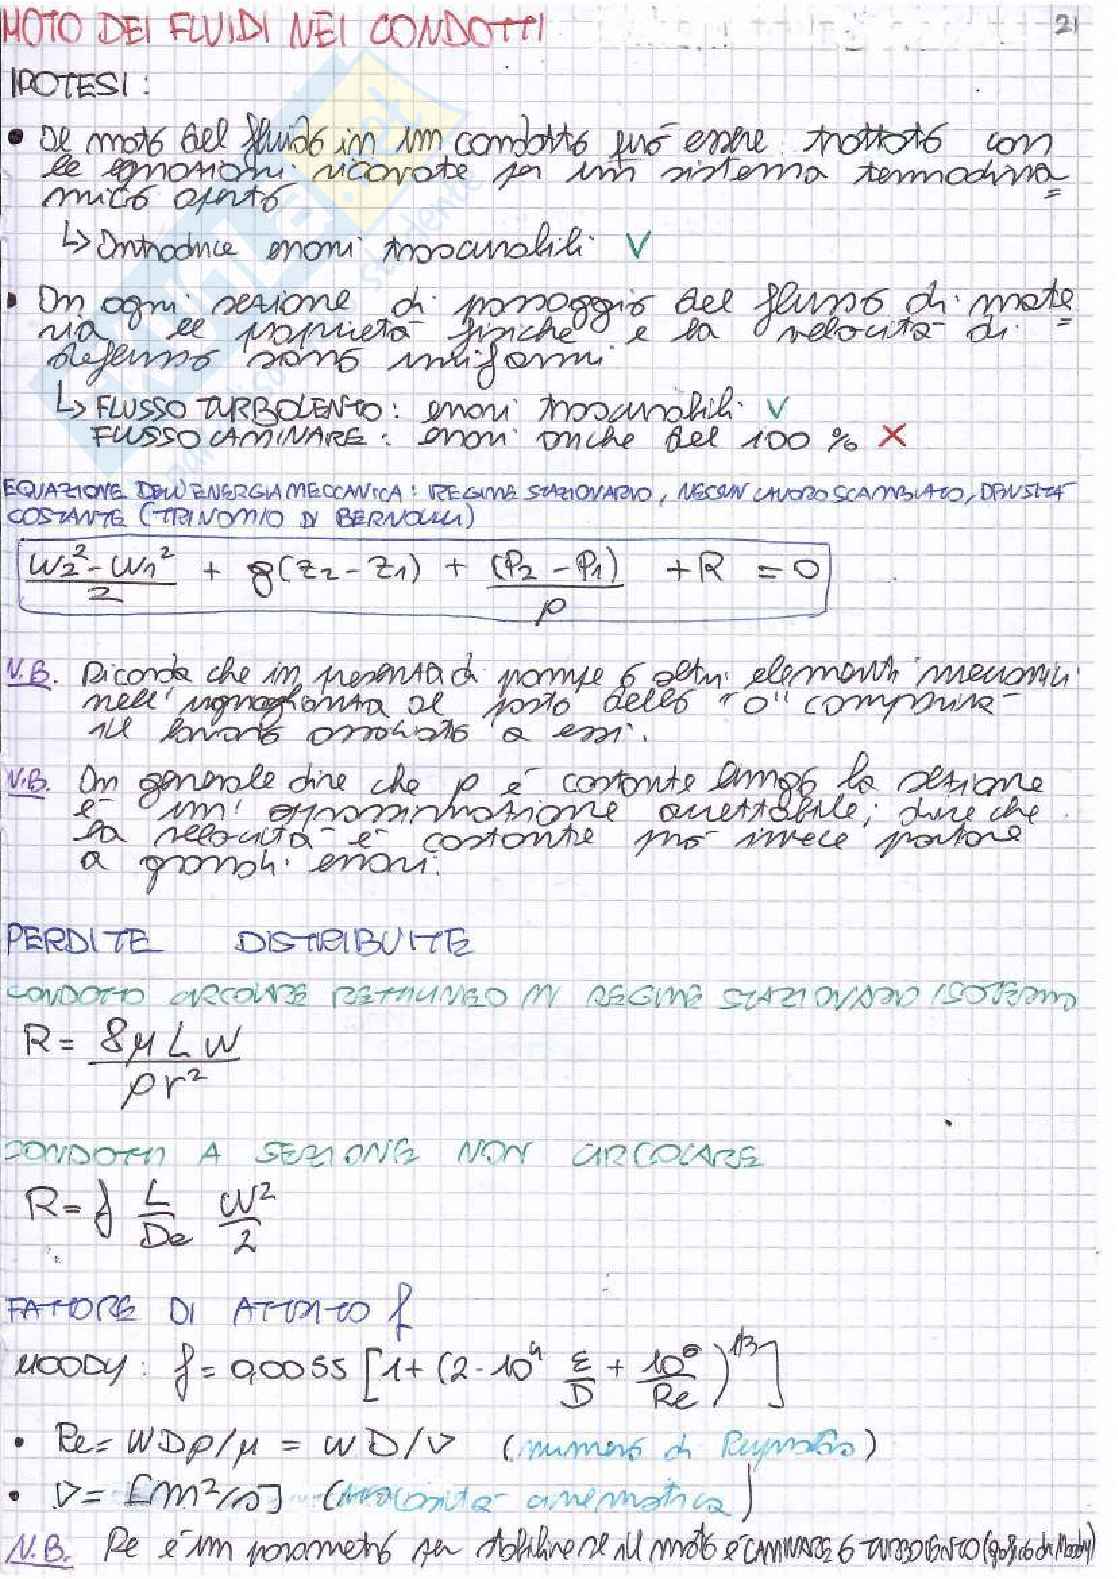 MOTO DEI FLUIDI NEI CONDOTTI
21
IPOTESI:
• Il moto del fluido in un condotto può essere trattato con
le equazioni ricavate per un sistema termodina
mico aperto
↳ Introduce errori trascurabili V
• In ogni sezione di passaggio del flusso di mate
ria le proprietà fisiche e la velocità di
deflusso sono uniformi
↳ FLUSSO TURBOLENTO: errori trascurabili V
FLUSSO LAMINARE: errori anche del 100 % X
EQUAZIONE DELL'ENERGIA MECCANICA: REGIME STAZIONARIO, NESSUN LAVORO SCAMBIATO, DENSITÀ
COSTANTE (TRINOMIO DI BERNOULLI)
(w₂² - w₁²)/2 + g(z₂ - z₁) + (P₂ - P₁)/ρ + R = 0
N.B. Ricorda che in presenza di pompe o altri elementi meccanici
nell'uguaglianza al posto dello "0" comparirà
il lavoro associato a essi.
N.B. In generale dire che ρ è costante lungo la sezione
è un'approssimazione accettabile; dire che
la velocità è costante può invece portare
a grandi errori.
PERDITE DISTRIBUITE
CONDOTTO CIRCOLARE RETTILINEO IN REGIME STAZIONARIO ISOTERMO
R = 8μLw/ρr²
CONDOTTI A SEZIONE NON CIRCOLARE
R = f L/De w²/2
FATTORE DI ATTRITO f
MOODY: f = 0,0055 [1 + (2·10⁴ ε/D + 10⁶/Re)^1/3]
• Re = wDρ/μ = wD/ν (numero di Reynolds)
• ν = [m²/s] (viscosità cinematica)
N.B. Re è un parametro per stabilire se il moto è LAMINARE o TURBOLENTO (grafico di Moody)